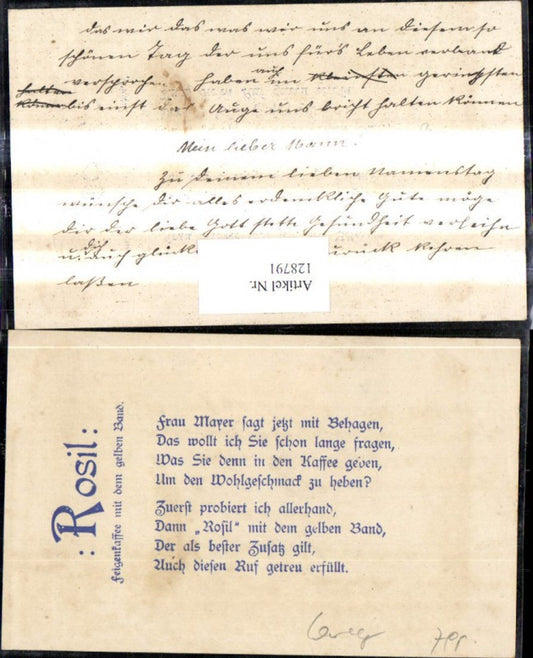 das wir das was wir uns an diesem so
schönen Tag der uns fürs Leben verband
versprochen haben auch im kleinsten geringsten
halten
können bis einst das Auge uns bricht halten können
Mein lieber Mann!
Zu deinem lieben Namenstag
wünsche dir alles erdenkliche Gute möge
dir der liebe Gott stets Gesundheit verleihn
u. dich zurück kehren
laßen
Artikel Nr.
128791
: Rosil :
Feigenkaffee mit dem gelben Band.
Frau Mayer sagt jetzt mit Behagen,
Das wollt ich Sie schon lange fragen,
Was Sie denn in den Kaffee geben,
Um den Wohlgeschmack zu heben?
Zuerst probiert ich allerhand,
Dann „Rosil" mit dem gelben Band,
Der als bester Zusatz gilt,
Auch diesen Ruf getreu erfüllt.